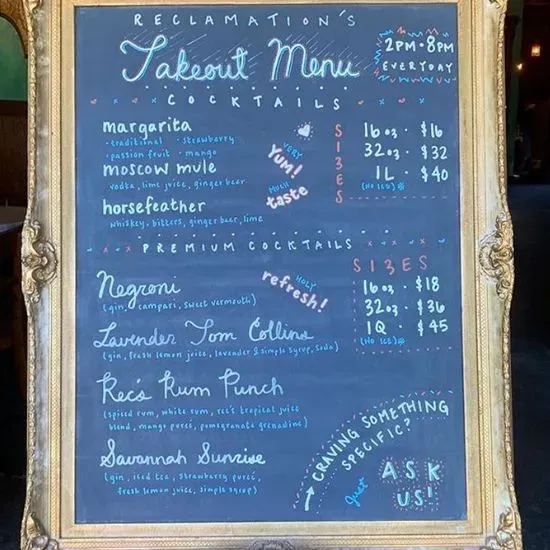 RECLAMATION'S
Takeout Menu
2PM • 8PM
EVERYDAY
COCKTAILS
margarita
• traditional • strawberry
• passion fruit • mango
moscow mule
vodka, lime juice, ginger beer
horsefeather
whiskey, bitters, ginger beer, lime
VERY
YUM!
MUCH
taste
SIZES
16oz • $16
32oz • $32
1L • $40
(NO ICE)
PREMIUM COCKTAILS
Negroni
(gin, campari, sweet vermouth)
Lavender Tom Collins
(gin, fresh lemon juice, lavender & simple syrup, soda)
Rec's Rum Punch
(spiced rum, white rum, rec's tropical juice
blend, mango puree, pomegranate grenadine)
Savannah Sunrise
(gin, iced tea, strawberry puree,
fresh lemon juice, simple syrup)
HOLY
refresh!
SIZES
16oz • $18
32oz • $36
1Q • $45
(NO ICE)
CRAVING SOMETHING
SPECIFIC?
Just
ASK
US!